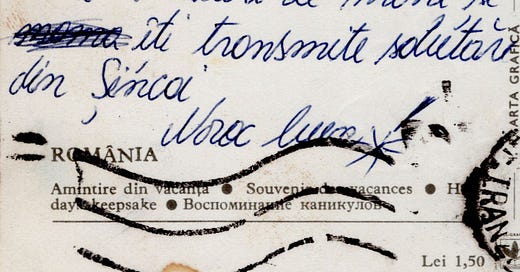 de mine și
mama îți transmite salutări
din Șincai
Noroc bun
ROMÂNIA
Amintire din vacanța ● Souvenir des vacances ● H
day keepsake ● Воспоминание каникулов
Lei 1,50
CARTA GRAFICĂ
TRANS